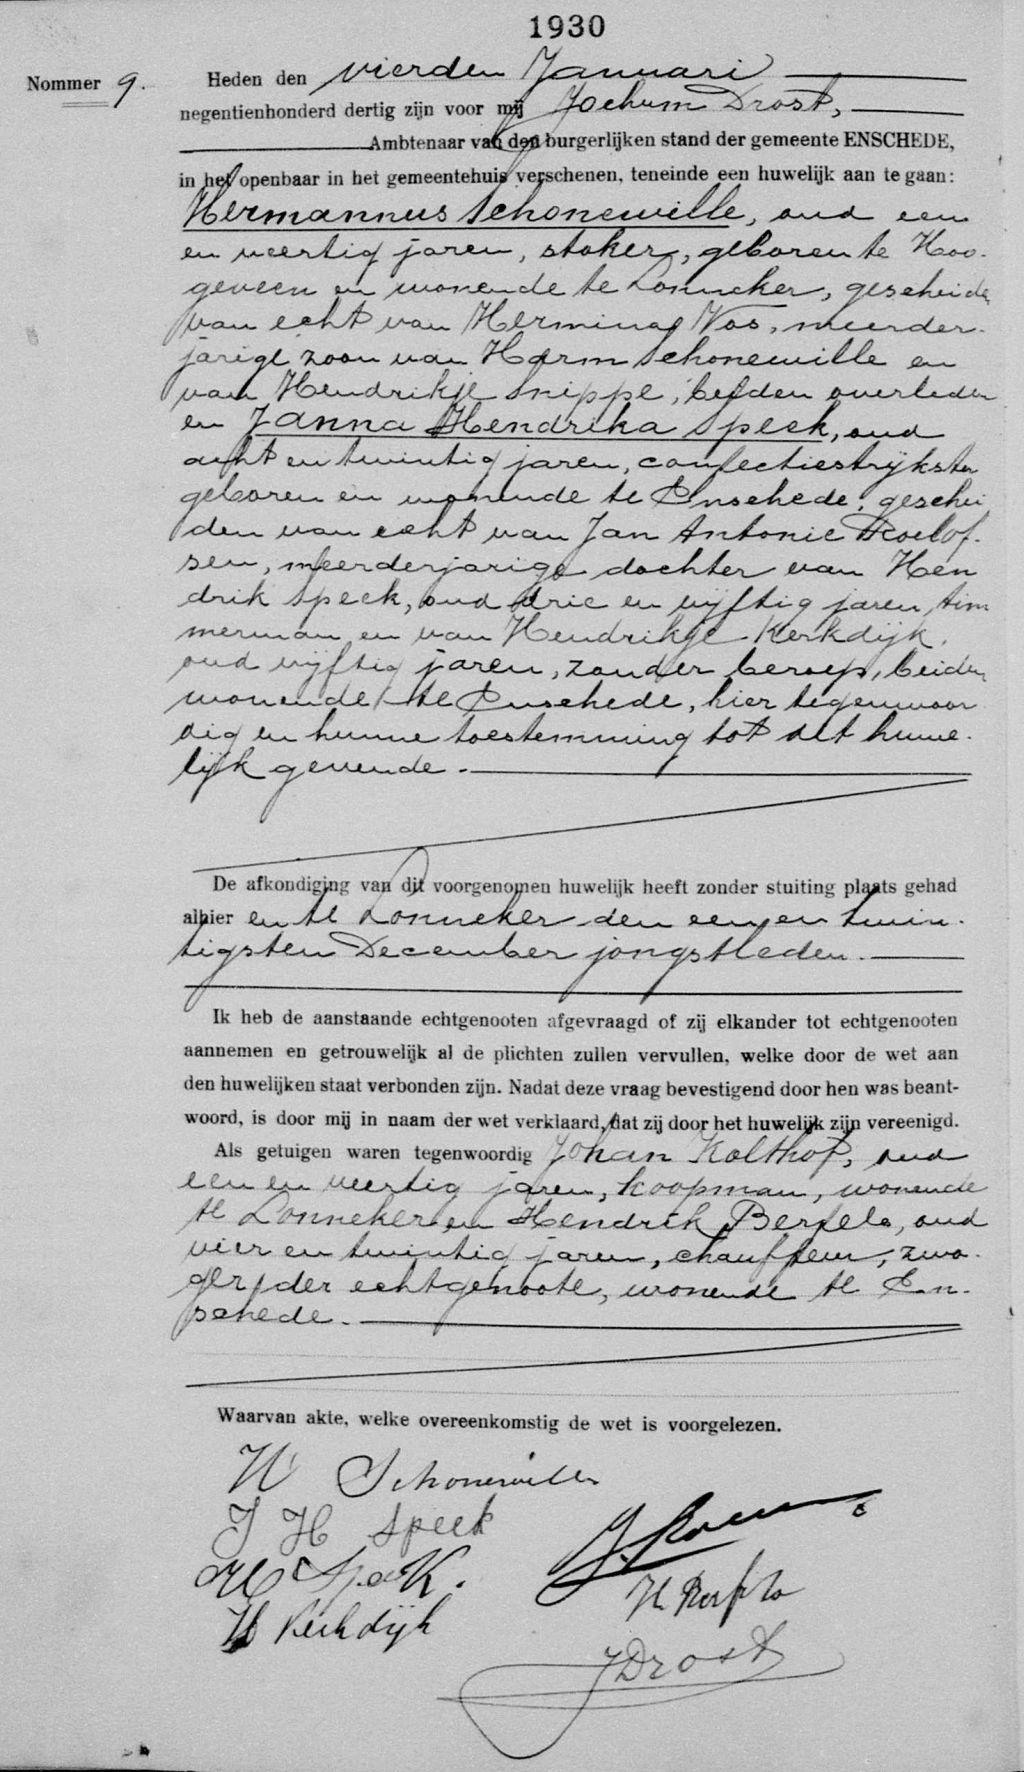 1930
Nommer 9. Heden den vierden Januari
negentienhonderd dertig zijn voor mij Jochum Drost,
Ambtenaar van den burgerlijken stand der gemeente ENSCHEDE,
in het openbaar in het gemeentehuis verschenen, teneinde een huwelijk aan te gaan:
Hermannus Schonewille, oud een
en veertig jaren, stoker, geboren te Hoo-
geveen en wonende te Lonneker, gescheiden
van echt van Hermina Vos, meerder-
jarige zoon van Harm Schonewille en
van Hendrikje Snippe, beiden overleden
en Janna Hendrika Speek, oud
acht en twintig jaren, confectiestrijkster
geboren en wonende te Enschede, geschei
den van echt van Jan Antonie Roelof-
sen, meerderjarige dochter van Hen
drik Speek, oud drie en vijftig jaren, tim
merman en van Hendrikje Kerkdijk,
oud vijftig jaren, zonder beroep, beiden
wonende te Enschede, hier tegenwoor
dig en hunne toestemming tot dit huwe-
lijk gevende.
De afkondiging van dit voorgenomen huwelijk heeft zonder stuiting plaats gehad
alhier en te Lonneker den een en twin-
tigsten December jongstleden.
Ik heb de aanstaande echtgenooten afgevraagd of zij elkander tot echtgenooten
aannemen en getrouwelijk al de plichten zullen vervullen, welke door de wet aan
den huwelijken staat verbonden zijn. Nadat deze vraag bevestigend door hen was beant-
woord, is door mij in naam der wet verklaard, dat zij door het huwelijk zijn vereenigd.
Als getuigen waren tegenwoordig Johan Kolthof, oud
een en veertig jaren, koopman, wonende
te Lonneker en Hendrik Berfelo, oud
vier en twintig jaren, chauffeur, zwa-
ger der echtgenoote, wonende te En-
schede.
Waarvan akte, welke overeenkomstig de wet is voorgelezen.
H Schonewille
J H Speek
H Speek.
H Kerkdijk
H Berfelo
J Drost